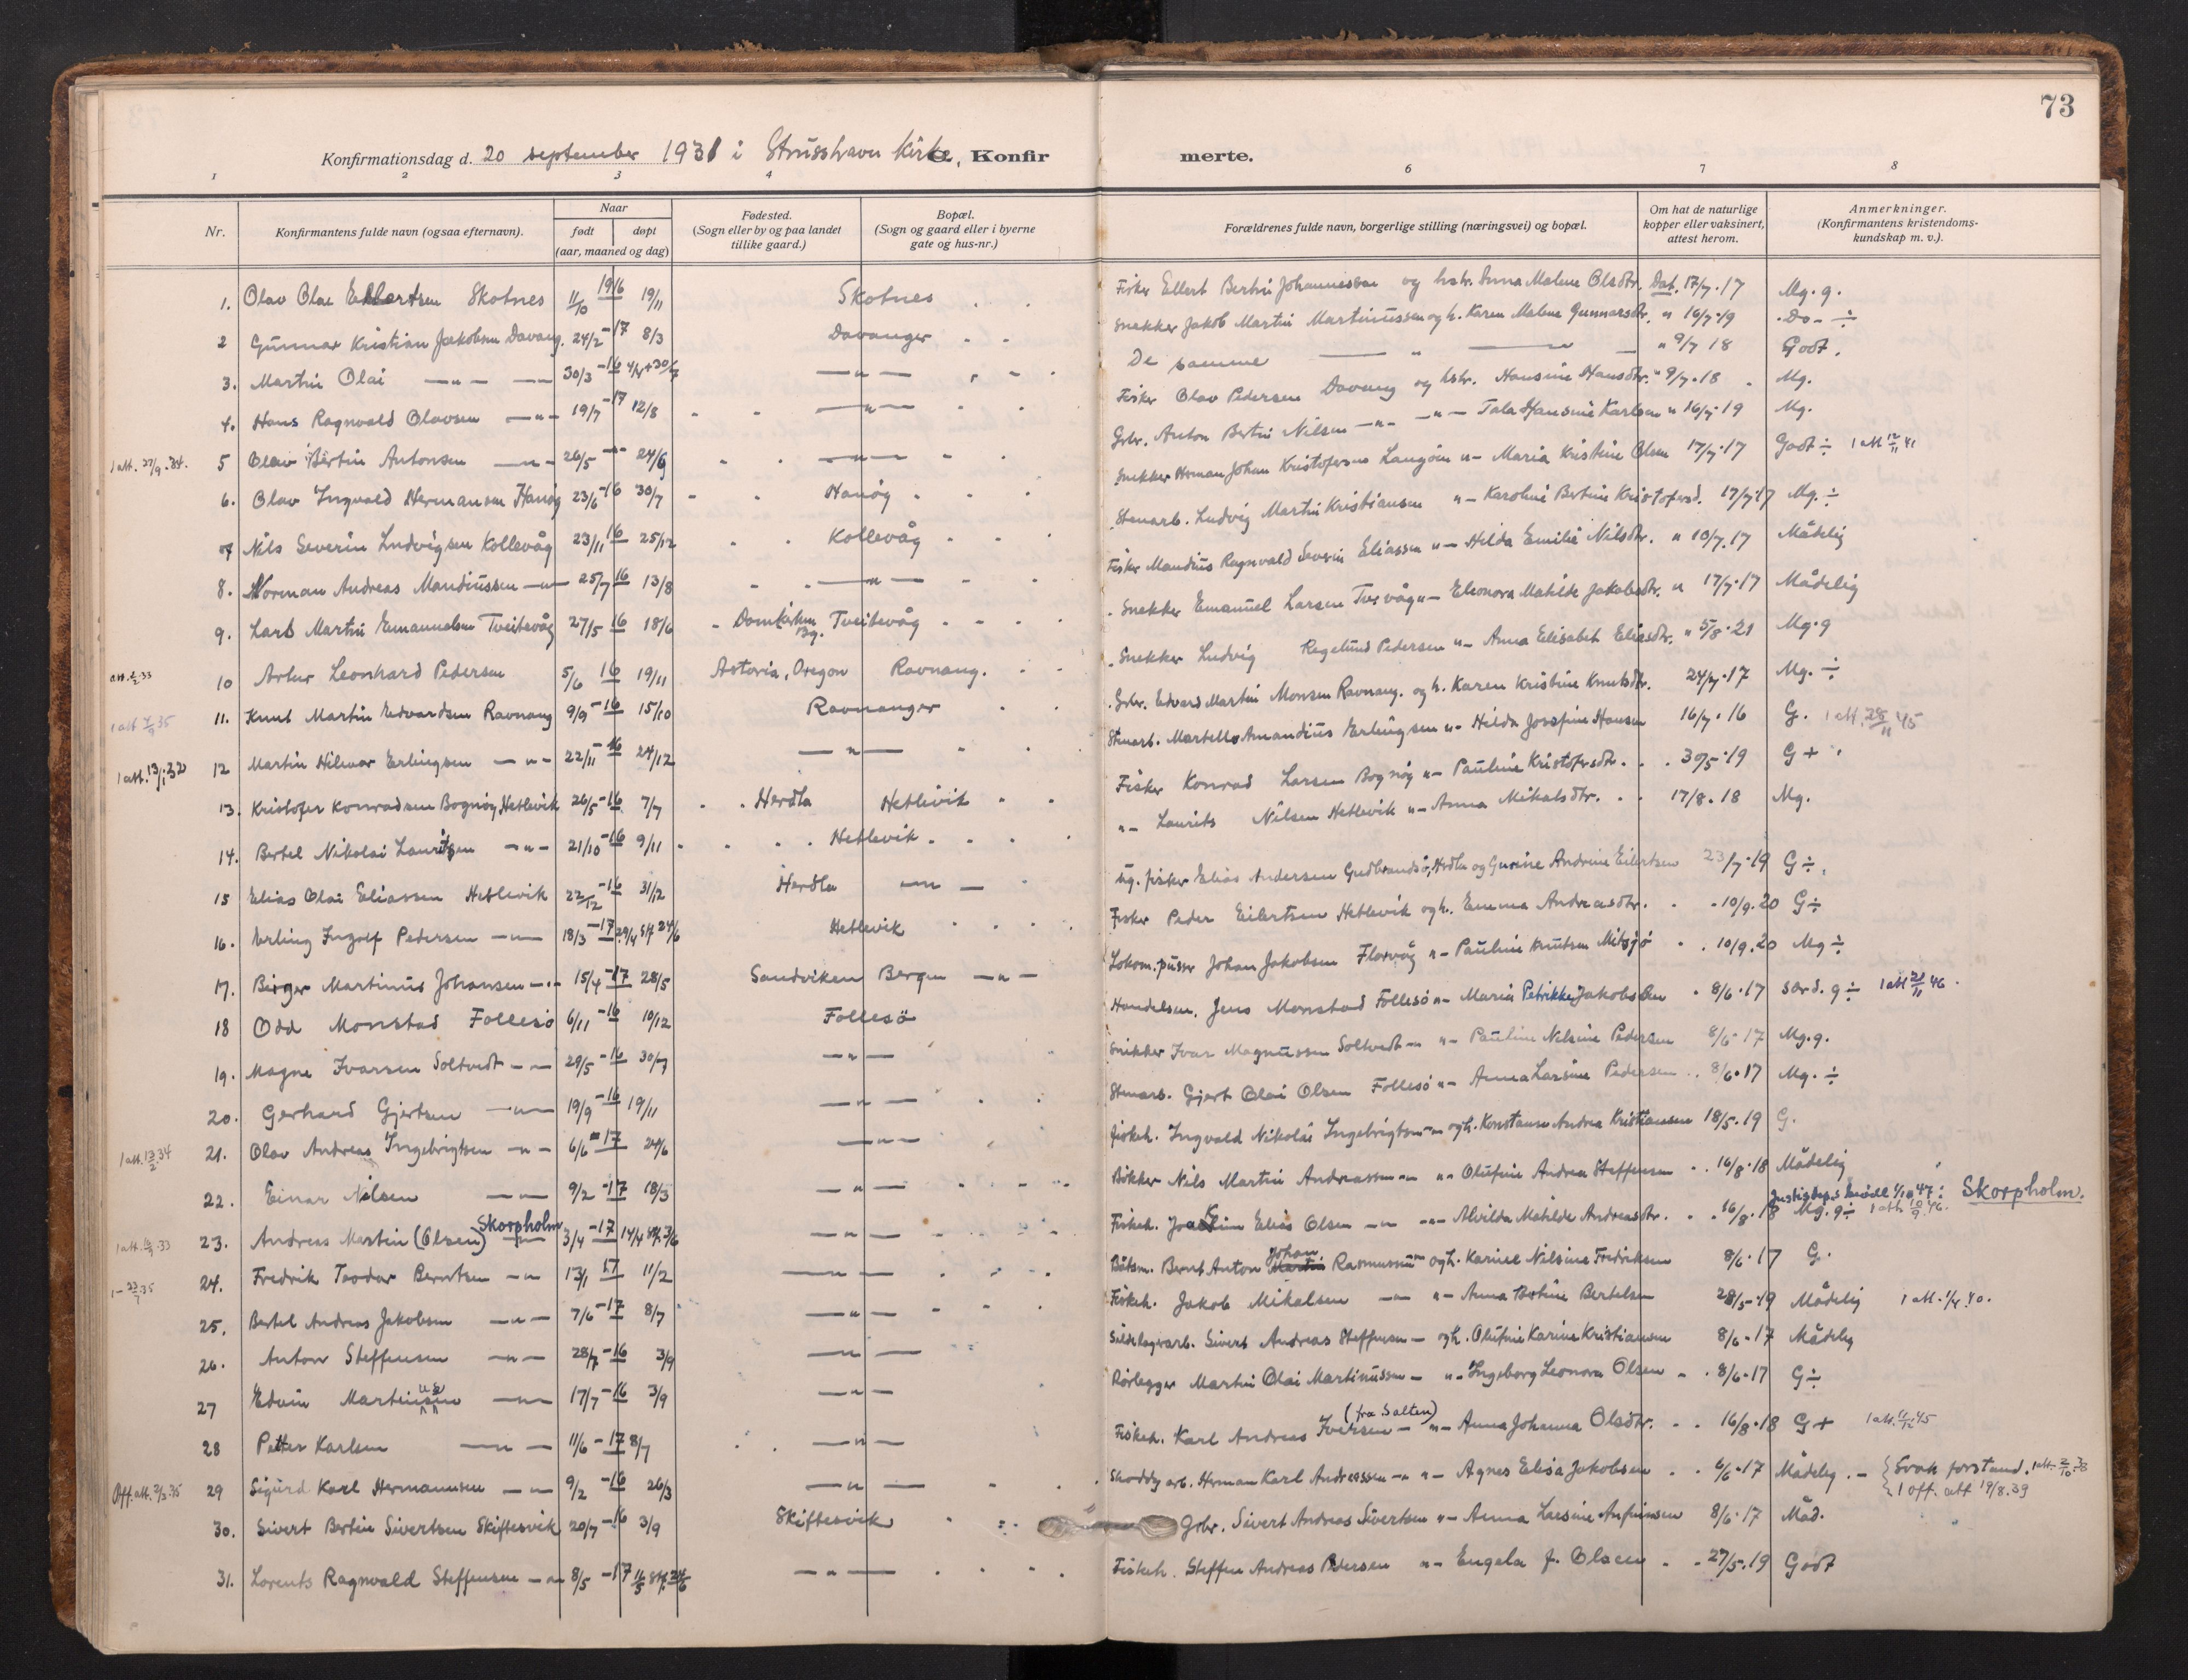 73
Konfirmationsdag d. 20 september 1931 i Strusshavn Kirke, Konfirmerte.
1 2 3 4 6 7 8
Nr. Konfirmantens fulde navn (ogsaa efternavn). Naar født døpt (aar, maaned og dag) Fødested. (Sogn eller by og paa landet tillike gaard.) Bopæl. (Sogn og gaard eller i byerne gate og hus-nr.) Forældrenes fulde navn, borgerlige stilling (næringsvei) og bopæl. Om hat de naturlige kopper eller vaksinert, attest herom. Anmerkninger. (Konfirmantens kristendoms-kundskap m. v.).
1. Olav Olai Ellertsen Skotnes 11/10 1916 19/11 Skotnes Fisker Ellert Bertin Johannessen og hstr. Anna Malene Olsdtr. Dat. 17/7.17 Mg. g.
2 Gunnar Kristian Jakobsen Davang. 24/2 -17 8/3 Davanger Snekker Jakob Martin Martinussen og h. Karen Malene Gunnarsdtr. " 16/7.19 -Do- ÷
3. Martin Olai —"— 30/3 -16 4/4 + 30/7 —"— De samme —"— " 9/7 18 Godt.
4. Hans Ragnvald Olavsen —"— 19/7 -17 12/8 —"— Fisker Olav Pedersen Davang og hstr. Hansine Hansdtr. " 9/7.18 Mg.
1 att. 27/9.34. 5 Olav Bertin Antonsen —"— 26/5 -"- 24/6 —"— Grbr. Anton Bertin Nilsen —"— —"— Tala Hansine Karlsen " 16/7.19 Mg.
6. Olav Ingvald Hermansen Hanøg 23/6 -16 30/7 Hanøg Snekker Herman Johan Kristofersen Langøen "— Maria Kristine Olsen 17/7.17 Godt ÷ 1 att 12/11 41
7 Nils Severin Ludvigsen Kollevåg 23/11 16 25/12 Kollevåg Stenarb. Ludvig Martin Kristiansen "— Karoline Bertine Kristofersd. 17/7.17 Mg. ÷
8. Norman Andreas Mandiussen —"— 25/7 16 13/8 —"— Fisker Mandius Ragnvald Severin Eliassen "— Hilda Emilie Nilsdtr. " 10/7.17 Mådelig
9. Lars Martin Emanuelsen Tveitevåg 27/5 16 18/6 Domkirken Bg. Tveitevåg Snekker Emanuel Larsen "— Eleonora Matilde Jakobsdtr. " 17/7.17 Mådelig
att. 2/2 33 10 Artur Leonhard Pedersen 5/6 16 19/11 Astoria, Oregon Ravnang. Snekker Ludvig Pedersen "— Anna Elisabet Eliasdtr. " 5/8.21 Mg.g
11. Knut Martin Edvardsen Ravnang 9/9 -16 15/10 Ravnanger Grbr. Edvard Martin Monsen Ravnang. og h. Karen Kristine Knutsdtr. 24/7.17 Mg. ÷
1 att. 13/1 32 12 Martin Hilmar Erlingsen —"— 22/11 -16 24/12 —"— Stenarb. Amandius Erlingsen "— Hilda Josefine Hansen 16/7.16 G. 1 att. 28/11 45
13. Kristofer Konradsen Bognøy, Hetlevik 26/5 -16 7/7 Herdla Hetlevik Fisker Konrad Larsen Bognøy "— Pauline Kristofersdtr. 30/5.19 G +
14. Bertel Nikolai Lauritsen —"— 21/10 -16 9/11 Hetlevik "— Laurits Nilsen Hetlevik "— Anna Mikalsdtr. 17/8.18 Mg.
15 Elias Olai Eliassen Hetlevik 22/12 -16 31/12 Herdla —"— ug. fisker Elias Andersen Gudbrandsø, Herdla og Gurine Andrine Eilertsen 23/7.19 G ÷
16. Erling Ingolf Pedersen —"— 18/3 -17 29/4 st. 24/6 Hetlevik Fisker Peder Eilertsen Hetlevik og h. Emma Andreasdtr. 10/9.20 G ÷
17. Birger Martinus Johansen —"— 15/4 -17 28/5 Sandviken Bergen —"— Lokom.pusser Johan Jakobsen Florvåg "— Pauline Knutsen Mitsjø 10/9.20 Mg ÷
18 Odd Monstad Follesø 6/11 -16 10/12 Follesø Handelsm. Jens Monstad Follesø "— Maria Petrikke Jakobsen 8/6.17 særd. g ÷ 1 att 21/11 46.
19. Magne Ivarsen Soltvedt —"— 29/5 -16 30/7 —"— Snikker Ivar Magnussen Soltvedt —"— Pauline Nelsine Pedersen 8/6 17 Mg.g.
20. Gerhard Gjertsen —"— 19/9 -16 19/11 —"— Stenarb. Gjert Olai Olsen Follesø "— Anna Larsine Pedersen 8/6.17 Mg. ÷
1 att. 13/2 34 21. Olav Andreas Ingebrigtsen —"— 6/6 -17 24/6 —"— Fiskeh. Ingvald Nikolai Ingebrigtsen —"— og h. Konstanse Andrea Kristiansen 18/5.19 G.
22. Einar Nilsen —"— 9/2 -17 18/3 —"— Bøkker Nils Martin Andreassen —"— Olufine Andrea Steffensen 16/8.18 Mådelig
23. Andreas Martin (Olsen) Skorpholm 3/4 -17 14/4 st. 3/6 —"— Fiskeh. Joakim Elias Olsen —"— Alvilda Matilde Andreasdtr. 16/8.18 Mg. g ÷ 1 att. 10/9 46. Justisdep.s bevill 1/10 47: Skorpholm.
24. Fredrik Teodor Berntsen —"— 13/1 17 11/2 —"— Båtsm. Bernt Anton Johan Rasmussen —"— og h. Karine Nilsine Fredriksen 8/6.17 G.
25. Bertel Andreas Jakobsen —"— 7/6 -17 8/7 —"— Fiskeh. Jakob Mikalsen —"— "— Anna Bertine Bertelsen 28/5.19 Mådelig 1 att. 1/4.40.
26. Anton Steffensen —"— 28/7 -16 3/9 —"— Sildelagerarb. Sivert Andreas Steffensen — og h. Olufine Karine Kristiansen 8/6.17 Mådelig
27 Edvin Martinussen —"— 17/7 -16 3/9 —"— Rørlegger Martin Olai Martinussen — "— Ingeborg Leonora Olsen 8/6.17 G ÷
28 Petter Karlsen —"— 11/6 -17 8/7 —"— Fiskeh. Karl Andreas Iversen (fra Salten) "— Anna Johanna Olsdtr. 16/8.18 G +
Off. att. 2/3.35 29 Sigurd Karl Hermannsen —"— 9/2 -16 26/3 —"— Shoddyarb. Herman Karl Andreassen —"— Agnes Elisa Jakobsen 6/6.17 Mådelig. — Svak forstand. 1 att. 2/10.38 1 off. att 19/8.39
30. Sivert Bertin Sivertsen Skiftesvik 20/7 -16 3/9 Skiftesvik Grbr. Sivert Andreas Sivertsen "— Anna Larsine Anfinnsen 8/6.17 Måd.
31. Lorents Ragnvald Steffensen —"— 8/5 -17 —"— Fiskeh. Steffen Andreas Pedersen "— Engela J. Olsen 27/5.19 Godt